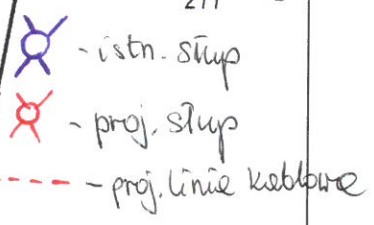 - istn. słup
- proj. słup
- proj. linie kablowe